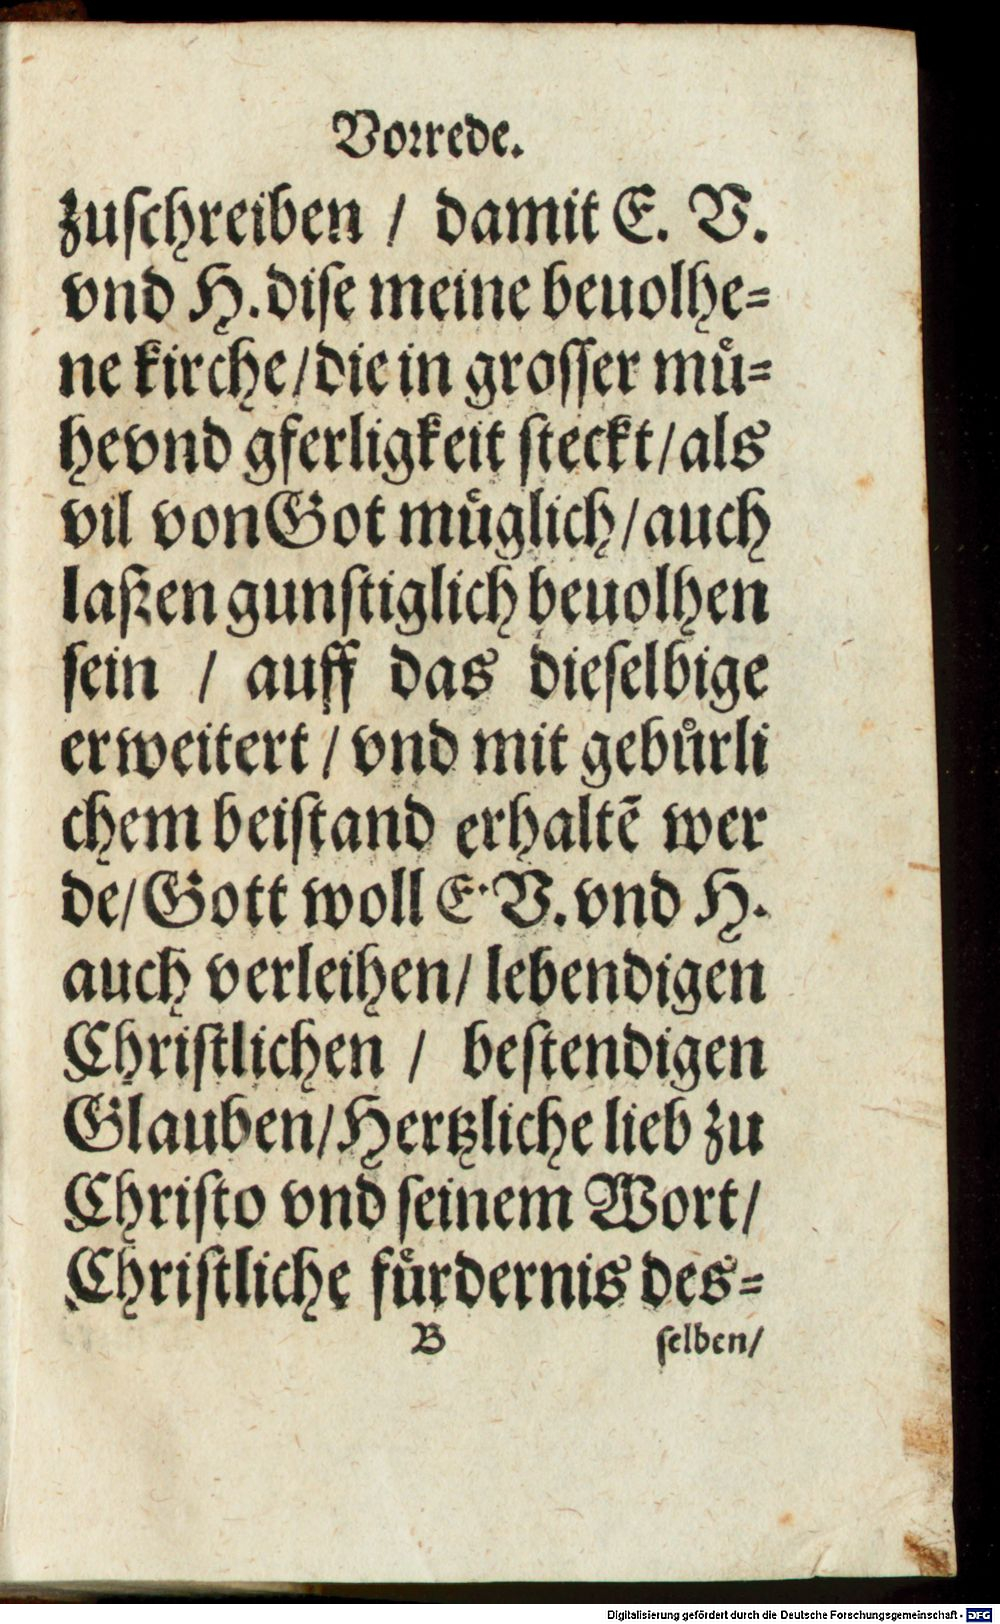 Vorrede.
zuschreiben / damit E. V.
vnd H. dise meine beuolhe=
ne kirche / die in grosser muͤ=
he vnd gferligkeit steckt / als
vil von Got muͤglich / auch
laßen gunstiglich beuolhen
sein / auff das dieselbige
erweitert / vnd mit gebuͤrli
chem beistand erhaltẽ wer
de / Gott woll E. V. vnd H.
auch verleihen / lebendigen
Christlichen / bestendigen
Glauben / Hertzliche lieb zu
Christo vnd seinem Wort /
Christliche fuͤrdernis des=
B selben /
Digitalisierung gefördert durch die Deutsche Forschungsgemeinschaft - DFG